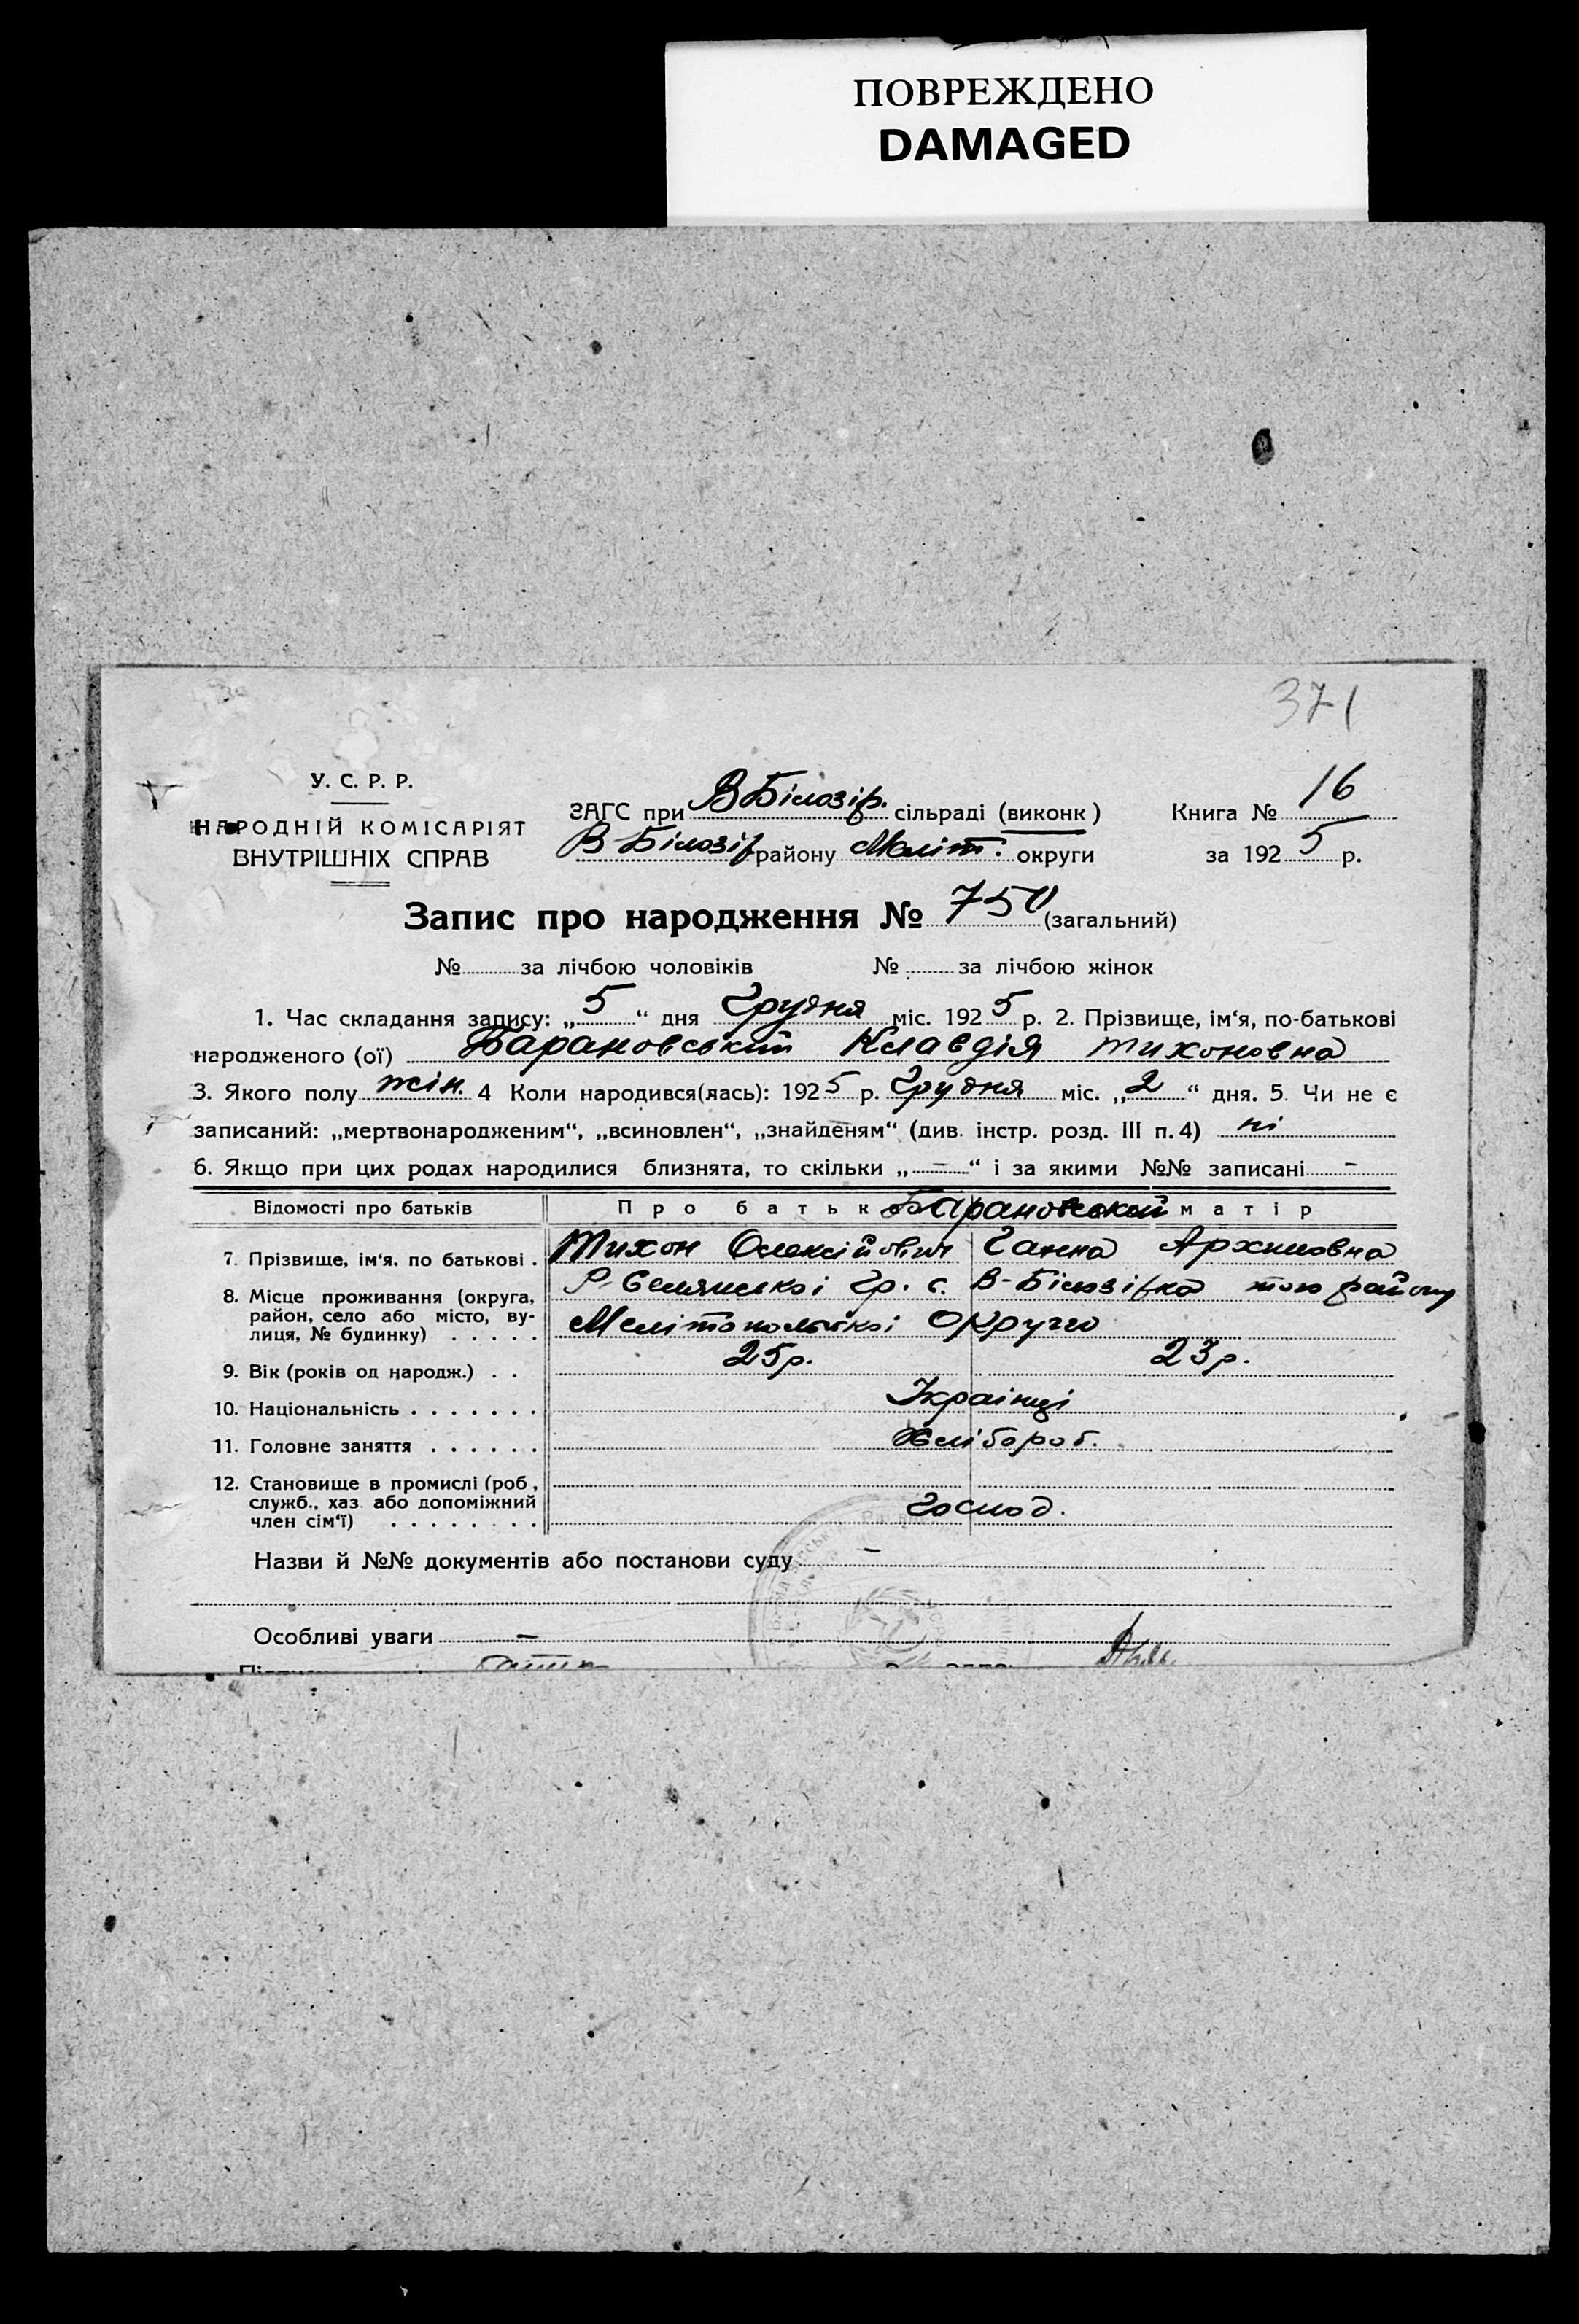 ПОВРЕЖДЕНО
DAMAGED
371
У. С. Р. Р.
НАРОДНІЙ КОМІСАРІЯТ
ВНУТРІШНІХ СПРАВ
ЗАГС при В Білозір. сільраді (виконк)
В-Білозір району Меліт. округи
Книга № 16
за 1925 р.
Запис про народження № 750 (загальний)
№ за лічбою чоловіків № за лічбою жінок
1. Час складання запису: „5“ дня Грудня міс. 1925 р. 2. Прізвище, ім‘я, по-батькові
народженого (ої) Барановський Клавдія Тихоновна
3. Якого полу жін. 4 Коли народився(лась): 1925 р. Грудня міс. „2“ дня. 5. Чи не є
записаний: „мертвонародженим“, „всиновлен“, „знайденям“ (див. інстр. розд. III п. 4) ні
6. Якщо при цих родах народилися близнята, то скільки „ – “ і за якими №№ записані –
Відомості про батьків Про батьк Барановський матір
7. Прізвище, ім‘я. по батькові . Тихон Олексійович Ганна Архиповна
8. Місце проживання (округа, район, село або місто, ву-
лиця, № будинку) . . . . .
Гр. с. В-Білозірка того району
Мелітопольської Округи
9. Вік (років од народж.) . . 25 р. 23 р.
10. Національність . . . . . . . Українці
11. Головне заняття . . . . . . Хлібороб.
12. Становище в промислі (роб,
служб., хаз. або допоміжний
член сім‘ї) . . . . . . . . Господ.
Назви й №№ документів або постанови суду –
Особливі уваги –